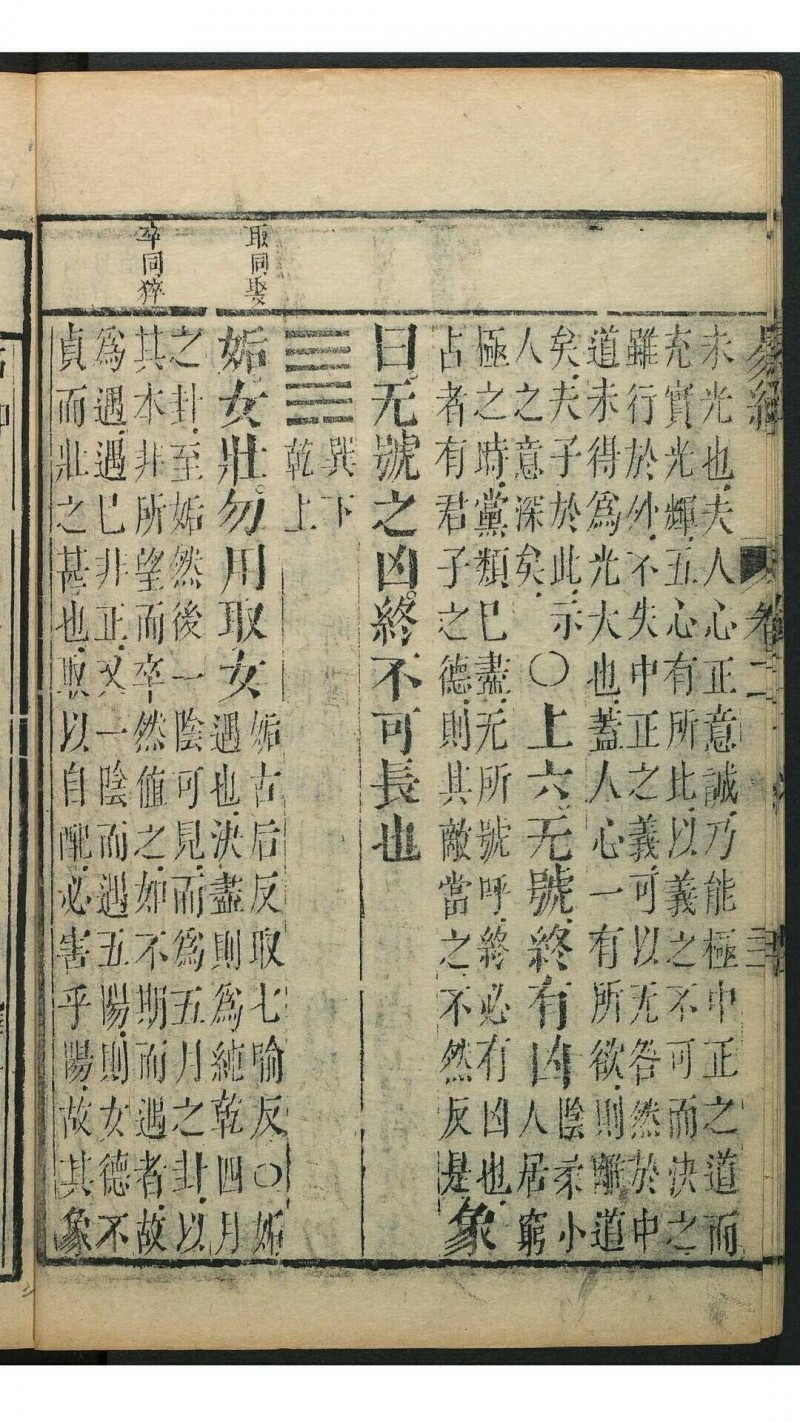 易經
卷二
未光也夫人心正意誠乃能極中正之道而
充實光輝五心有所比以義之不可而決之
雖行於外不失中正之義可以无咎然於中
道未得爲光大也蓋人心一有所欲則離道
矣夫子於此示
人之意深矣
〇上六无號終有凶
陰柔小
人居窮
極之時黨類巳盡无所號呼終必有凶也
占者有君子之德則其敵當之不然反是
象
曰无號之凶終不可長也
巽下
乾上
取同娶
姤女壯勿用取女
姤古后反取七喻反〇姤
遇也決盡則爲純乾四月
之卦至姤然後一陰可見而爲五月之卦以
卒同猝
其本非所望而卒然値之如不期而遇者故
爲遇遇巳非正又一陰而遇五陽則女德不
貞而壯之甚也取以自配必害乎陽故其象